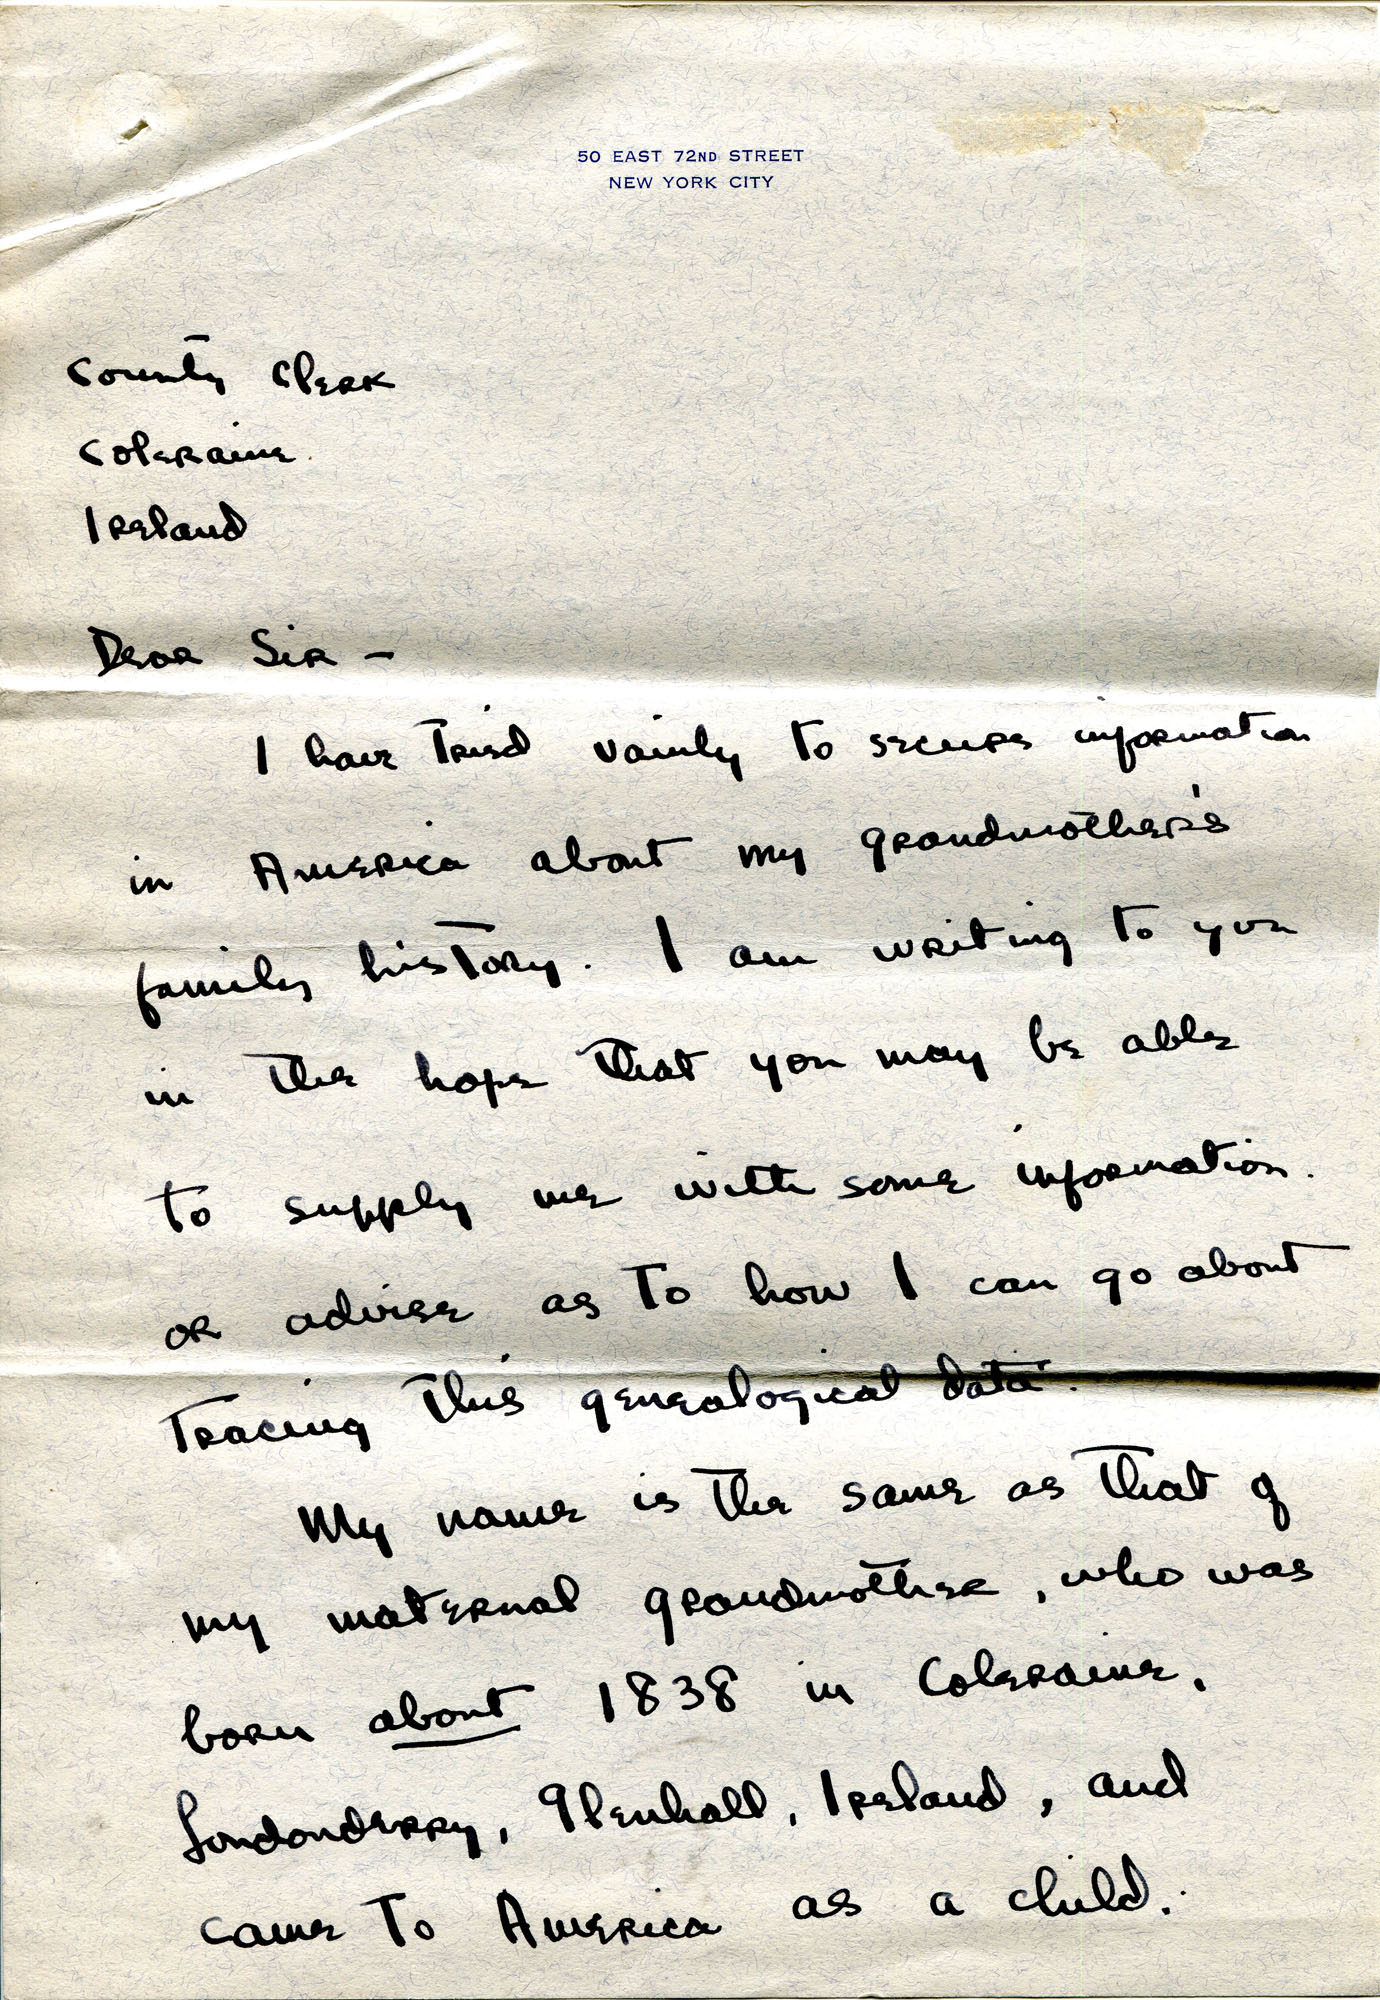 50 EAST 72ND STREET
NEW YORK CITY
County Clerk
Coleraine
Ireland
Dear Sir –
I have tried vainly to secure information
in America about my grandmother's
family history. I am writing to you
in the hope that you may be able
to supply me with some information.
or advise as to how I can go about
tracing this genealogical data.
My name is the same as that of
my maternal grandmother, who was
born about 1838 in Coleraine,
Londonderry, Glenhall, Ireland, and
came to America as a child.